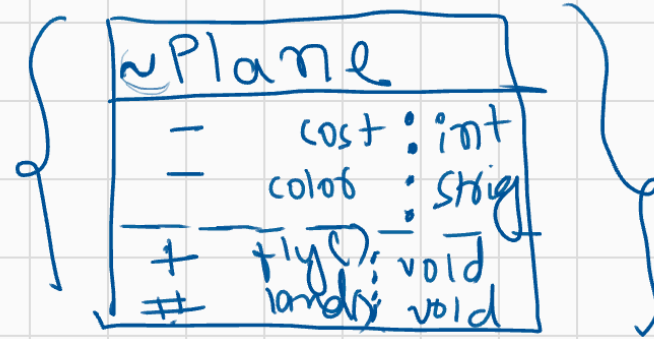 ~Plane
- cost : int
- color : strig
+ fly() : void
# land() : void